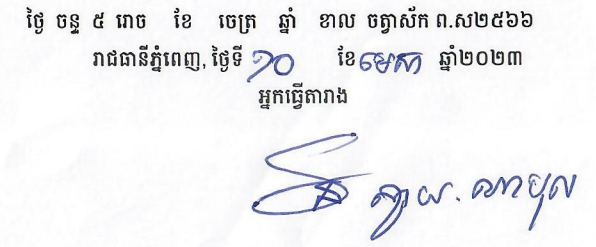 ថ្ងៃ ចន្ទ ៥ រោច ខែ ចេត្រ ឆ្នាំ ខាល ចត្វាស័ក ព.ស២៥៦៦
រាជធានីភ្នំពេញ, ថ្ងៃទី ១០ ខែ មេសា ឆ្នាំ២០២៣
អ្នកធ្វើតារាង